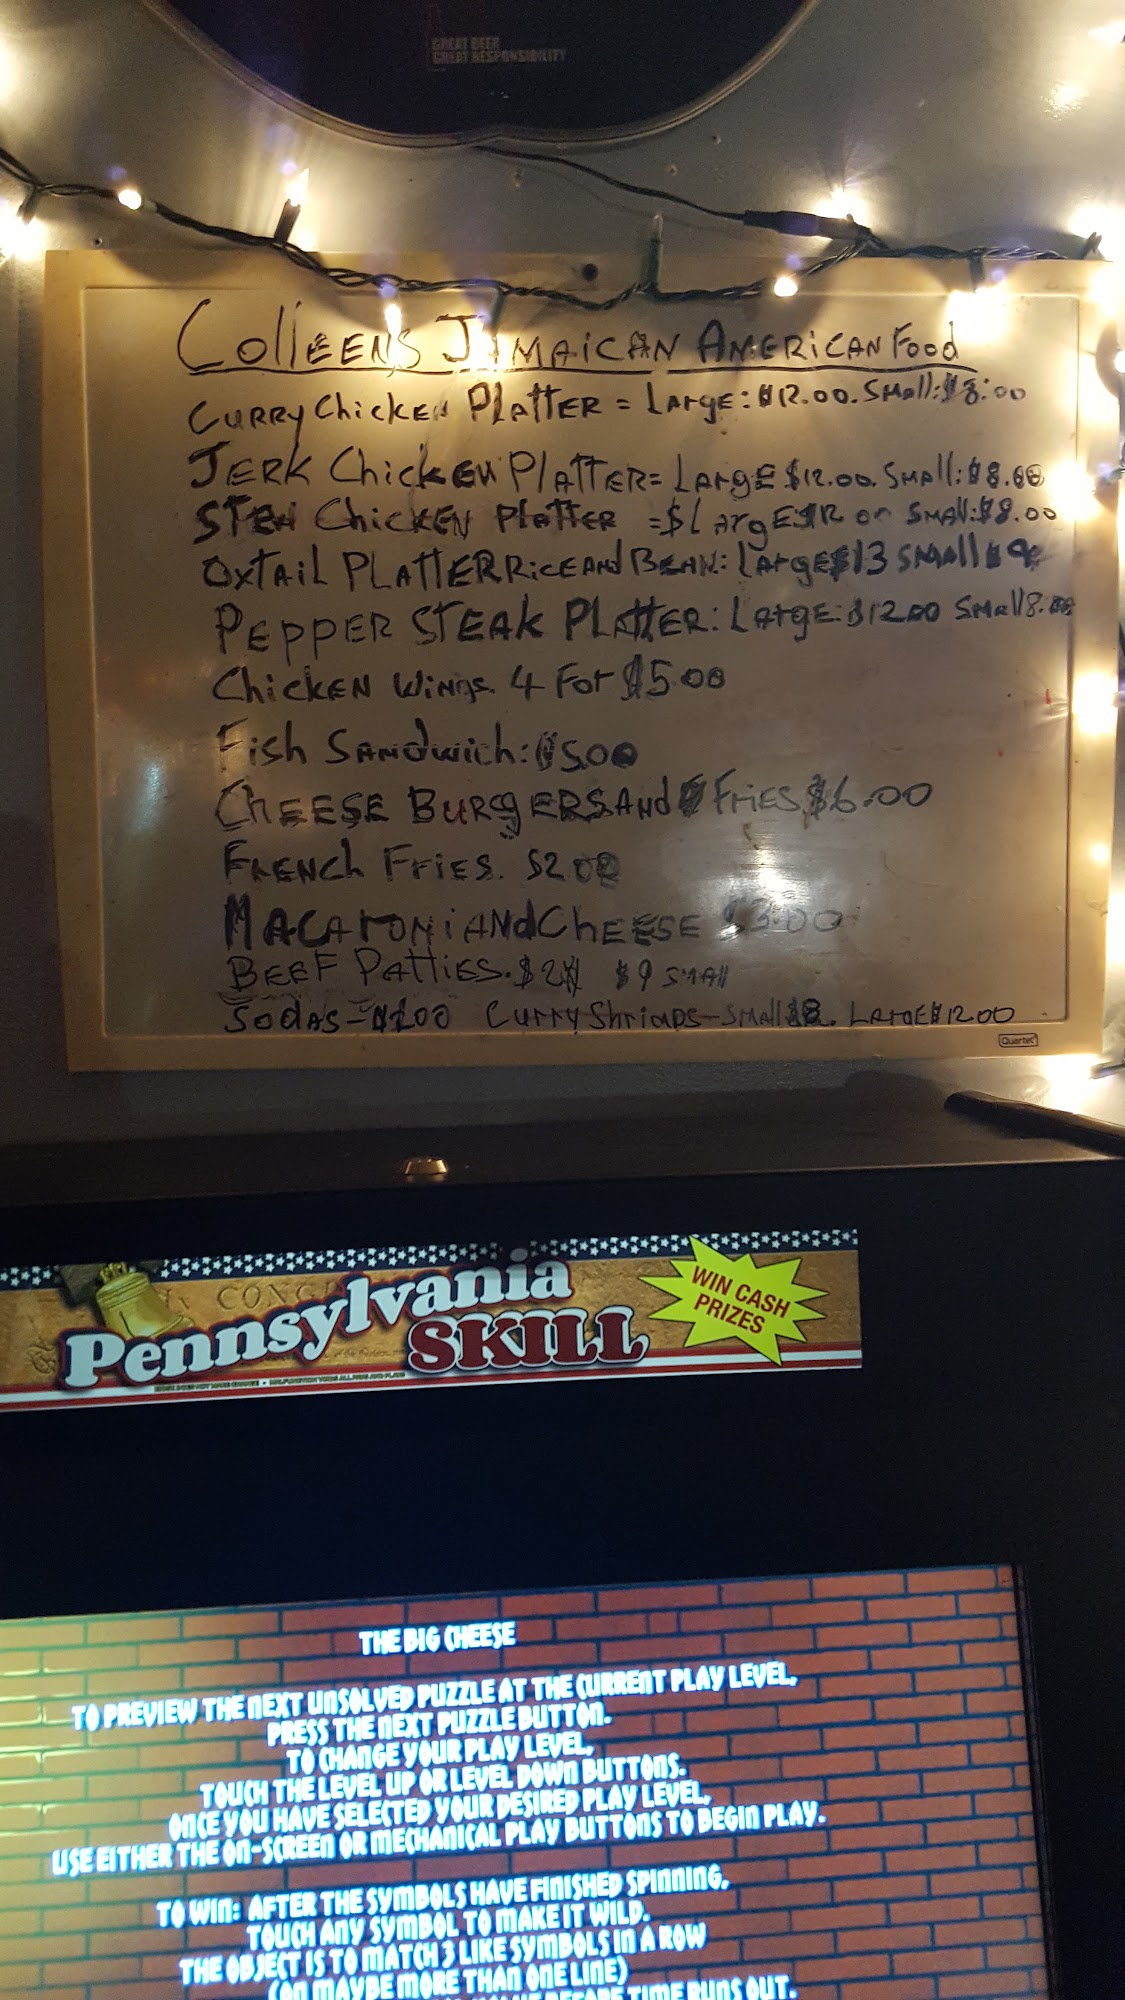 GREAT BEER
GREAT RESPONSIBILITY
COllEEN'S JAMAICAN AMERICAN Food
CURRY ChicKEN PlATTER = LArge: $12.00. SMAll: $8.00
JERK ChicKEN PlATTER = LArgE $12.00. SMAll: $8.00
ChicKEN PlATTER = $LArgE SMAll: $8.00
OxTAiL PLATTER RiCE ANd BEAN: LArgE $13 SMAll
PEPPER STEAK PlATTER: LArgE: $12.00 SMAll 8.00
ChicKEN Wings. 4 For $5.00
Fish SANdwich: $5.00
ChEESE BURgERS ANd FriES $6.00
FrENCh FriES. $2.00
MACAroNi ANd ChEESE $3.00
BEEF PATTiES. $2 $9 SMAll
SodAS - $1.00 CurryShrimps - SMAll $8. LArgE $12.00
Quartet
CONGR
Pennsylvania
SKILL
WIN CASH
PRIZES
THE BIG CHEESE
TO PREVIEW THE NEXT UNSOLVED PUZZLE AT THE CURRENT PLAY LEVEL,
PRESS THE NEXT PUZZLE BUTTON.
TO CHANGE YOUR PLAY LEVEL,
TOUCH THE LEVEL UP OR LEVEL DOWN BUTTONS.
ONCE YOU HAVE SELECTED YOUR DESIRED PLAY LEVEL,
USE EITHER THE ON-SCREEN OR MECHANICAL PLAY BUTTONS TO BEGIN PLAY.
TO WIN: AFTER THE SYMBOLS HAVE FINISHED SPINNING,
TOUCH ANY SYMBOL TO MAKE IT WILD.
THE OBJECT IS TO MATCH 3 LIKE SYMBOLS IN A ROW
(ON MAYBE MORE THAN ONE LINE)
BEFORE TIME RUNS OUT.